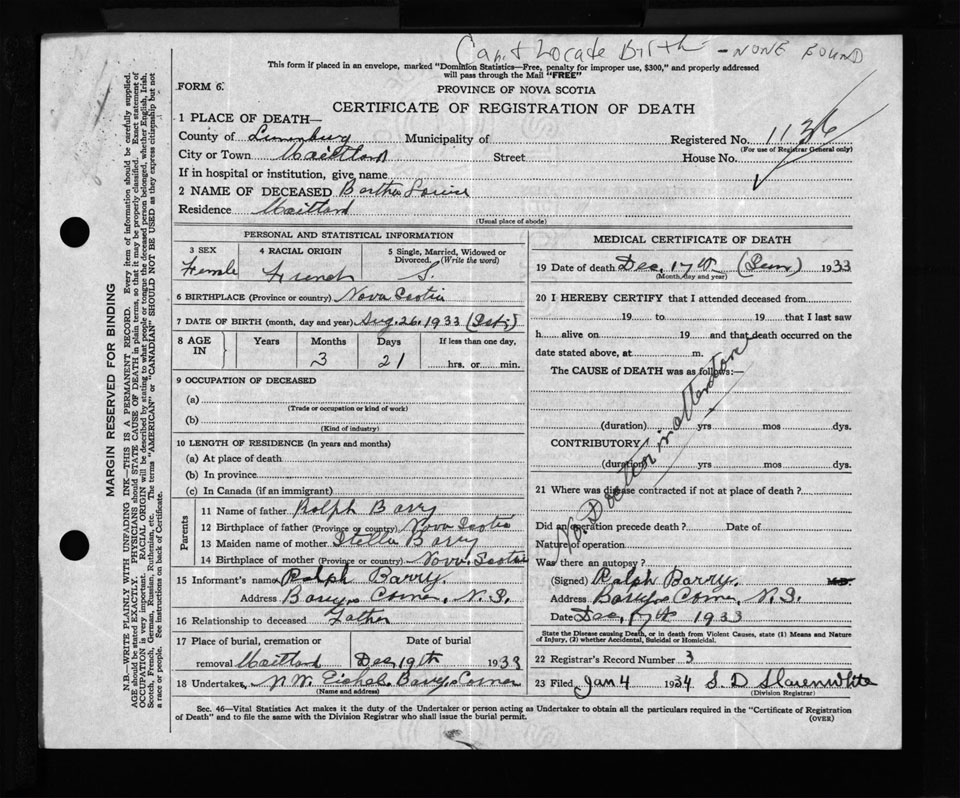 Can't Locate Birth - NONE FOUND
This form if placed in an envelope, marked "Dominion Statistics—Free, penalty for improper use, $300," and properly addressed
will pass through the Mail "FREE"
FORM 6.
PROVINCE OF NOVA SCOTIA
CERTIFICATE OF REGISTRATION OF DEATH
1 PLACE OF DEATH—
County of Lunenburg Municipality of Registered No. 1136
(For use of Registrar General only)
City or Town Maitland Street House No.
If in hospital or institution, give name
2 NAME OF DECEASED Bertha Louise
Residence Maitland
(Usual place of abode)
PERSONAL AND STATISTICAL INFORMATION
3 SEX 4 RACIAL ORIGIN 5 Single, Married, Widowed or Divorced. (Write the word)
Female French S.
6 BIRTHPLACE (Province or country) Nova Scotia
7 DATE OF BIRTH (month, day and year) Aug. 26, 1933
8 AGE IN Years Months Days If less than one day,
3 21 hrs. or min.
9 OCCUPATION OF DECEASED
(a)
(Trade or occupation or kind of work)
(b)
(Kind of industry)
10 LENGTH OF RESIDENCE (in years and months)
(a) At place of death
(b) In province
(c) In Canada (if an immigrant)
Parents
11 Name of father Ralph Barry
12 Birthplace of father (Province or country) Nova Scotia
13 Maiden name of mother Stella Barry
14 Birthplace of mother (Province or country) Nova Scotia
15 Informant's name Ralph Barry
Address Barrys Corner, N.S.
16 Relationship to deceased Father
17 Place of burial, cremation or Date of burial
removal Maitland Dec 19th 1933
18 Undertaker N.W. Barrys Corner
(Name and address)
MEDICAL CERTIFICATE OF DEATH
19 Date of death Dec, 17th (Sun) 1933
(Month, day and year)
20 I HEREBY CERTIFY that I attended deceased from
19 to 19 that I last saw
h alive on 19 and that death occurred on the
date stated above, at m.
The CAUSE of DEATH was as follows:—
No Doctor in attention
(duration) yrs mos dys.
CONTRIBUTORY
(duration) yrs. mos. dys.
21 Where was disease contracted if not at place of death?
Did an operation precede death? Date of
Nature of operation
Was there an autopsy?
(Signed) Ralph Barry. M.D.
Address Barrys Corner, N.S.
Date Dec, 17th 1933
State the Disease causing Death, or in death from Violent Causes, state (1) Means and Nature
of Injury, (2) whether Accidental, Suicidal or Homicidal.
22 Registrar's Record Number 3
23 Filed Jan 4 1934 S. D Slauenwhite
(Division Registrar)
Sec. 46—Vital Statistics Act makes it the duty of the Undertaker or person acting as Undertaker to obtain all the particulars required in the "Certificate of Registration
of Death" and to file the same with the Division Registrar who shall issue the burial permit.
(OVER)
MARGIN RESERVED FOR BINDING
N.B.—WRITE PLAINLY WITH UNFADING INK—THIS IS A PERMANENT RECORD. Every item of information should be carefully supplied.
AGE should be stated EXACTLY. PHYSICIANS should STATE CAUSE OF DEATH in plain terms, so that it may be properly classified. Exact statement of
OCCUPATION is very important. RACIAL ORIGIN will be described by stating to what people or tongue the deceased person belonged, whether English, Irish,
Scotch, French, German, Russian, Ruthenian, etc. The terms "AMERICAN" or "CANADIAN" SHOULD NOT BE USED as they express citizenship but not
a race or people. See instructions on back of Certificate.